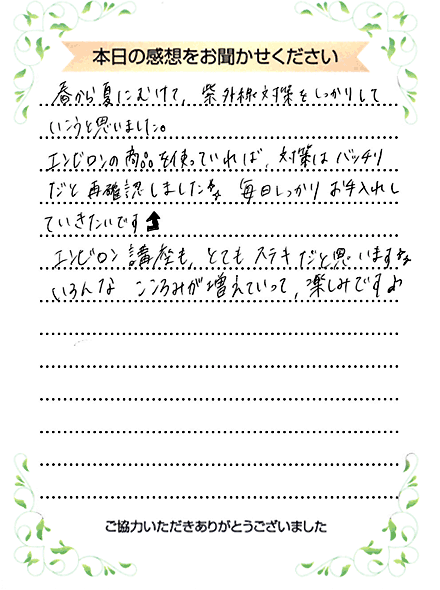 本日の感想をお聞かせください
春から夏にむけて、紫外線対策をしっかりして
いこうと思いました。
エンビロンの商品を使っていれば、対策はバッチリ
だと再確認しました 毎日しっかりお手入れし
ていきたいです
エンビロン講座も、とてもステキだと思います
いろんな こころみが増えていって、楽しみです
ご協力いただきありがとうございました